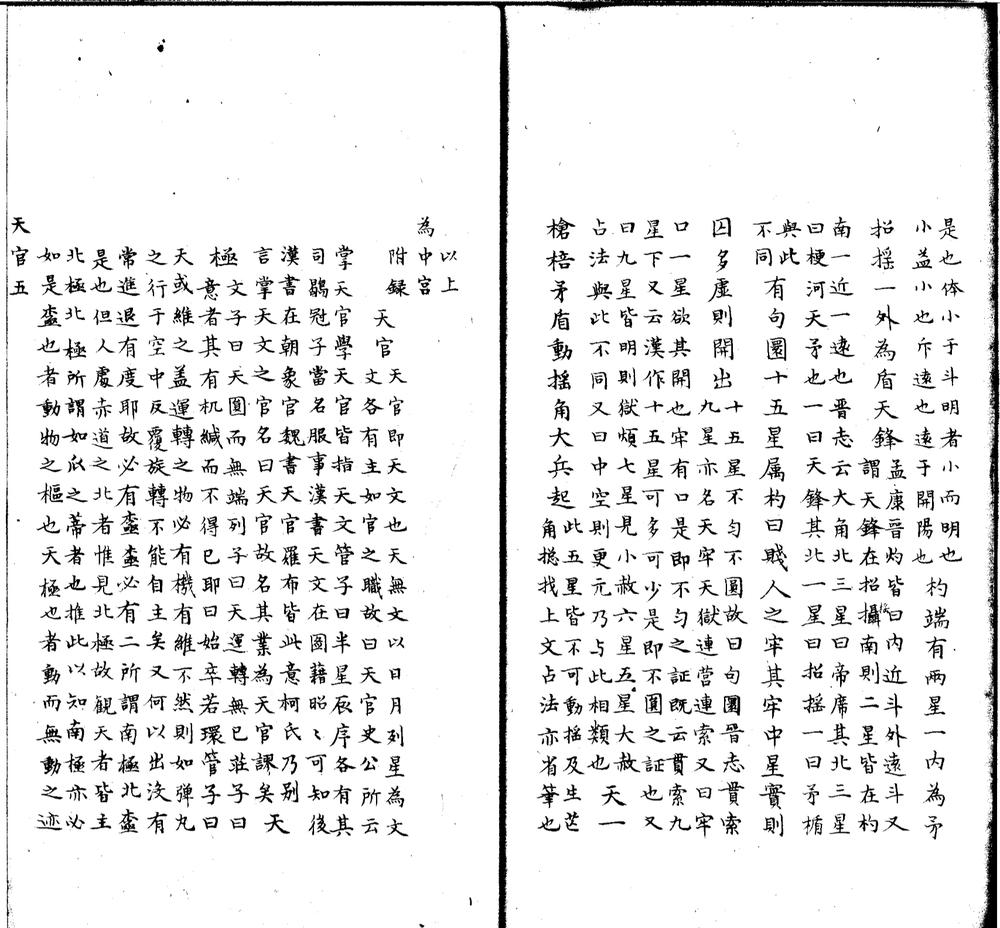 是也体小于斗明者小而明也
小益小也斥遠也遠于開陽也
杓端有兩星一内為矛
招摇一外為盾天鋒
孟康晋灼皆曰内近斗外遠斗又
謂天鋒在招攝南則二星皆在杓
南一近一遠也晋志云大角北三星曰帝席其北三星
曰梗河天矛也一曰天鋒其北一星曰招摇一曰矛楯
與此
不同
有句圜十五星屬杓曰賤人之牢其牢中星實則
囚多虚則開出
十五星不匀不圜故曰句圜晋志貫索
九星亦名天牢天獄連营連索又曰牢
口一星欲其開也牢有口是即不匀之証既云貫索九
星下又云漢作十五星可多可少是即不圜之証也又
曰九星皆明則獄煩七星見小赦六星五星大赦
占法與此不同又曰中空則更元乃与此相類也
天一
槍棓矛盾動摇角大兵起
此五星皆不可動摇及生芒
角摠找上文占法亦省筆也
以上
為中宫
附録
天官
天官即天文也天無文以日月列星為文
文各有主如官之職故曰天官史公所云
掌天官學天官皆指天文管子曰半星辰序各有其
司鶡冠子當名服事漢書天文在圖藉昭〻可知後
漢書在朝象官魏書天官羅布皆此意柯氏乃别
言掌天文之官名曰天官故名其業為天官謬矣
天
極
文子曰天圜而無端列子曰天運轉無已莊子曰
意者其有机緘而不得已耶曰始卒若環管子曰
天或維之盖運轉之物必有機有維不然則如弹丸
之行于空中反覆旋轉不能自主矣又何以出没有
常進退有度耶故必有必有二所謂南極北
是也但人處赤道之北者惟見北極故觀天者皆主
北極北極所謂如瓜之蒂者也推此以知南極亦必
如是也者動物之樞也天極也者動而無動之迹
天官五